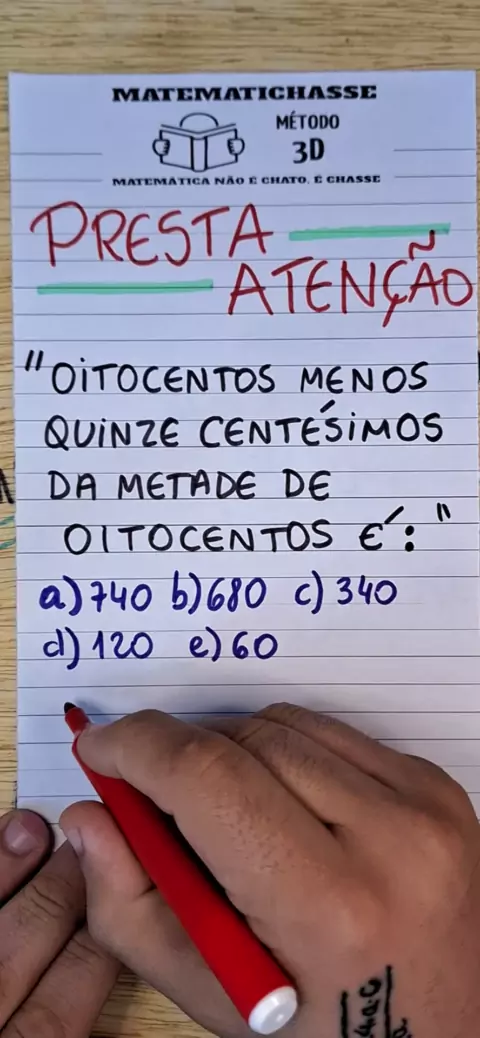 MATEMATICHASSE
MÉTODO
3D
MATEMÁTICA NÃO É CHATO, É CHASSE
PRESTA
ATENÇÃO
"OITOCENTOS MENOS
QUINZE CENTÉSIMOS
DA METADE DE
OITOCENTOS É:"
a) 740 b) 680 c) 340
d) 120 e) 60